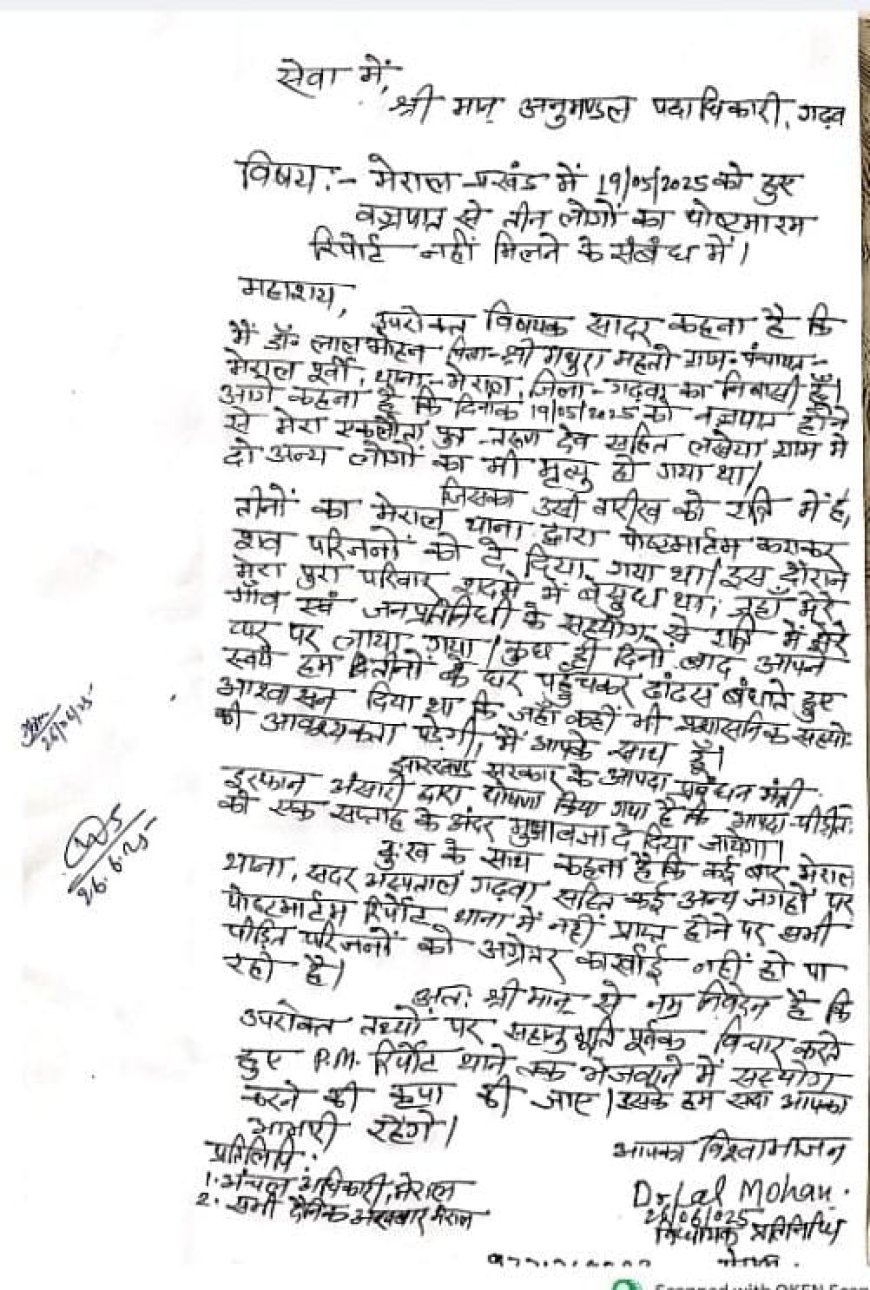 सेवा में,
श्री मान् अनुमण्डल पदाधिकारी, गढ़व
विषय:- मेराल प्रखंड में 19/05/2025 को हुए
वज्रपात से तीन लोगों का पोष्टमारम
रिपोर्ट नहीं मिलने के संबंध में।
महाशय,
उपरोक्त विषयक सादर कहना है कि
मैं डॉ॰ लाल मोहन पिता-श्री मथुरा महतो ग्राम-पंचायत-
मेराल पूर्वी, थाना-मेराल, जिला-गढ़वा का निवासी हूँ।
आगे कहना है कि दिनांक 19/05/2025 को वज्रपात होने
से मेरा एकलौता पुत्र तरूण देव सहित लखेया ग्राम में
दो अन्य लोगों का भी मृत्यु हो गया था।
जिसका उसी तारीख को रात्रि में हीं,
तीनों का मेराल थाना द्वारा पोष्टमार्टम कराकर
शव परिजनों को दे दिया गया था। इस दौरान
मेरा पुरा परिवार शदमे में बेसुध था, जहाँ मेरे
गाँव एवं जनप्रतिनिधी के सहयोग से रात्रि में मेरे
घर पर लाया गया। कुछ ही दिनों बाद आपने
स्वयं हम तीनों के घर पहुँचकर ढांढस बंधाते हुए
आश्वासन दिया था कि जहाँ कहीं भी प्रशासनिक सहयो-
की आवश्यकता पड़ेगी, मैं आपके साथ हूँ।
झारखण्ड सरकार के आपदा प्रबंधन मंत्री
इरफान अंसारी द्वारा घोषणा किया गया है कि आपदा-पीड़ित
को एक सप्ताह के अंदर मुआवजा दे दिया जायेगा।
दुःख के साथ कहना है कि कई बार मेराल
थाना, सदर अस्पताल गढ़वा सहित कई अन्य जगहों पर
पोष्टमार्टम रिर्पोट थाना में नहीं प्राप्त होने पर सभी
पीड़ित परिजनों को अग्रेतर कार्रवाई नहीं हो पा
रही है।
अतः श्री मान् से नम्र निवेदन है कि
उपरोक्त तथ्यों पर सहानुभूति पूर्वक विचार करते
हुए P.M. रिर्पोट थाने तक भेजवाने में सहयोग
करने की कृपा की जाए। इसके हम सदा आपका
आभारी रहेंगे।
आपका विश्वाभाजन
Dr. Lal Mohan.
26/06/025
विधायक प्रतिनिधि
मेराल.
प्रतिलिपि:
1. अंचल अधिकारी, मेराल
2. सभी दैनिक अखबार मेराल
26.6.25
Scanned with OKEN Scan